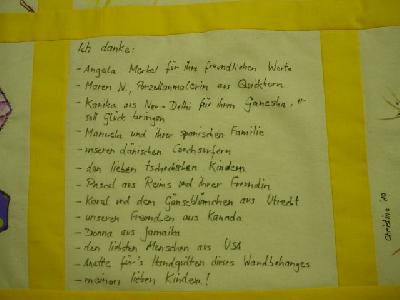 Ich danke:
- Angela Merkel für ihre freundlichen Worte
- Maren N., Porzellanmalerin aus Quickborn
- Kanika aus Neu-Delhi für ihren Ganesha, er
soll Glück bringen
- Manuela und ihrer spanischen Familie
- unseren dänischen Couchsurfern
- den lieben tschechischen Kindern
- Pascal aus Reims und ihrer Freundin
- Karel und dem Gänseblümchen aus Utrecht
- unseren Freunden aus Kanada
- Donna aus Jamaika
- den liebsten Menschen aus USA
- Anette für's Handquilten dieses Wandbehanges
- meinen lieben Kindern!
Christine